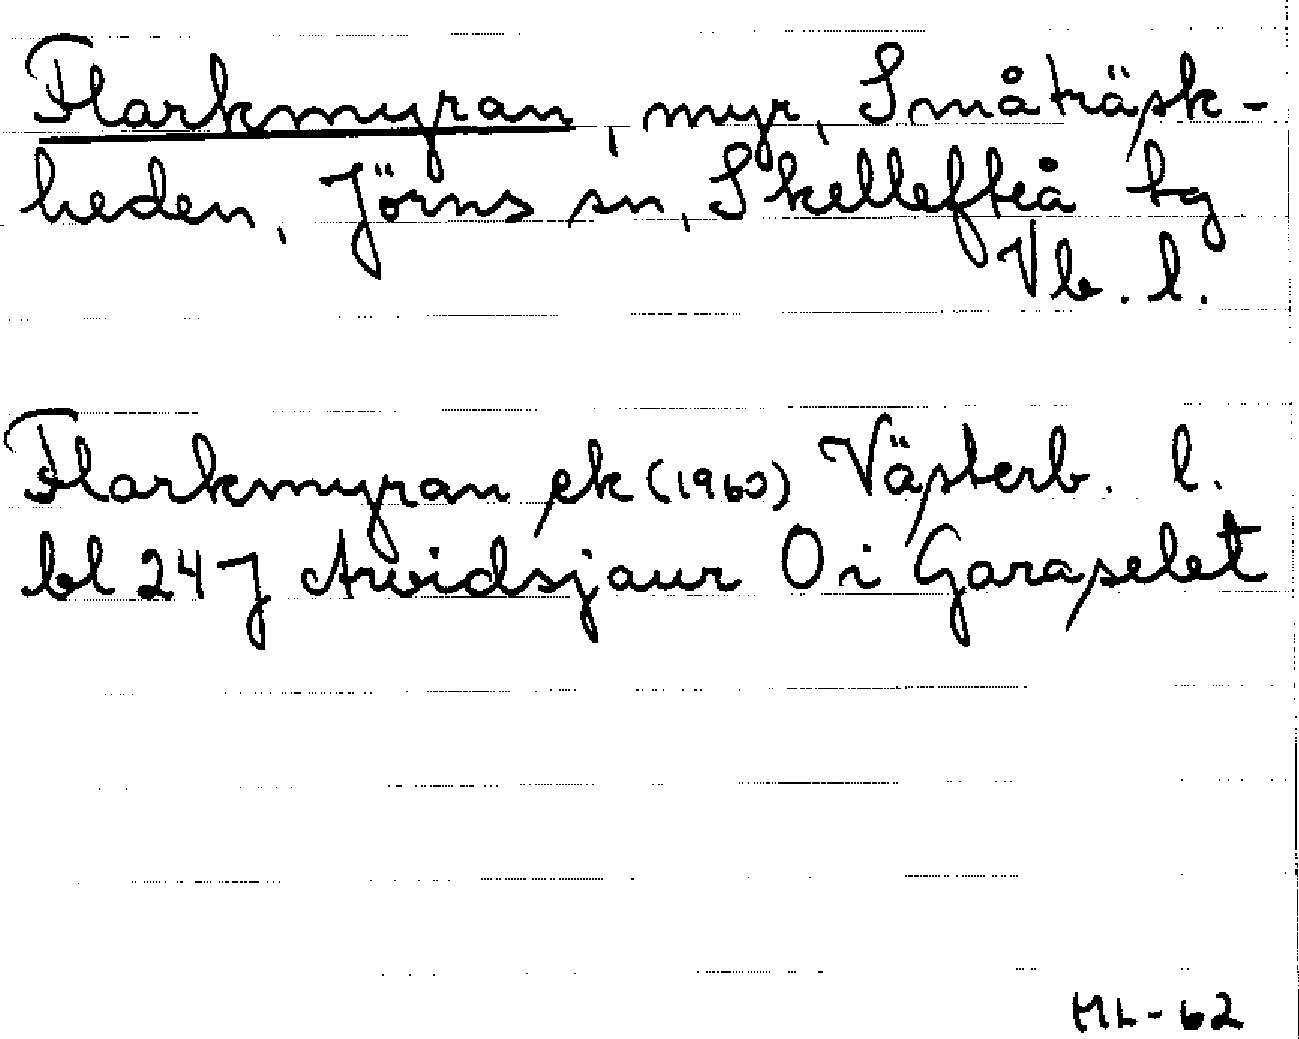 Flarkmyran, myr, Småträsk-
heden, Jörns sn, Skellefteå tg
Vb. l.
Flarkmyran ek (1960) Västerb. l.
bl 24 J Arvidsjaur O i Garaselet
ML-62